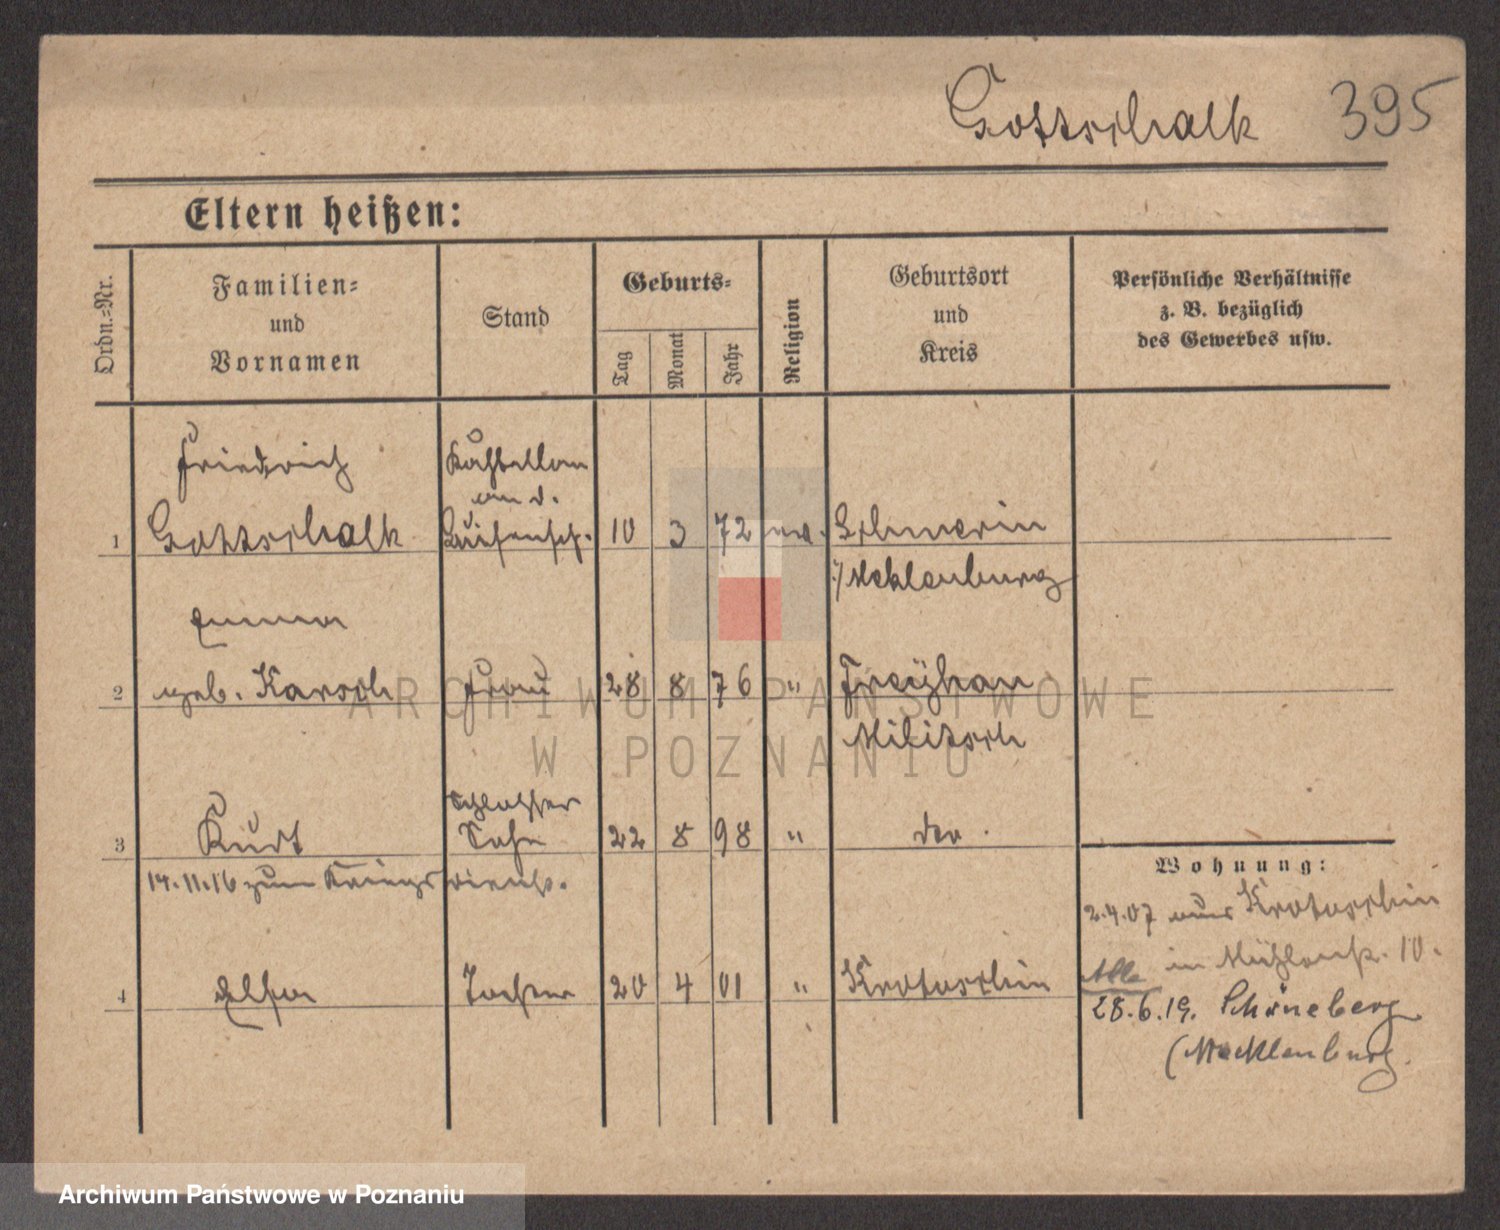 Gottschalk 395
Eltern heißen:
Ordn.=Nr.
Familien=
und
Vornamen
Stand
Geburts=
Tag
Monat
Jahr
Religion
Geburtsort
und
Kreis
Persönliche Verhältnisse
z. B. bezüglich
des Gewerbes usw.
Friedrich Kastellan
an d.
1 Gottschalk Luisensch. 10 3 72 ev. Schwerin
i/Meklenburg
Emma
2 geb. Karsch Frau 28 8 76 " Freyhan
Militsch
Schlosser
3 Kurt Sohn 22 8 98 " do
14.11.16 zum Kriegsdienst.
Wohnung:
2.4.07 aus Krotoschin
in Mühlenstr. 10.
4 Elsa Tochter 20 4 01 " Krotoschin
Alle
28.6.19. Schöneberg
(Mecklenburg.
ARCHIWUM PAŃSTWOWE
W POZNANIU
Archiwum Państwowe w Poznaniu